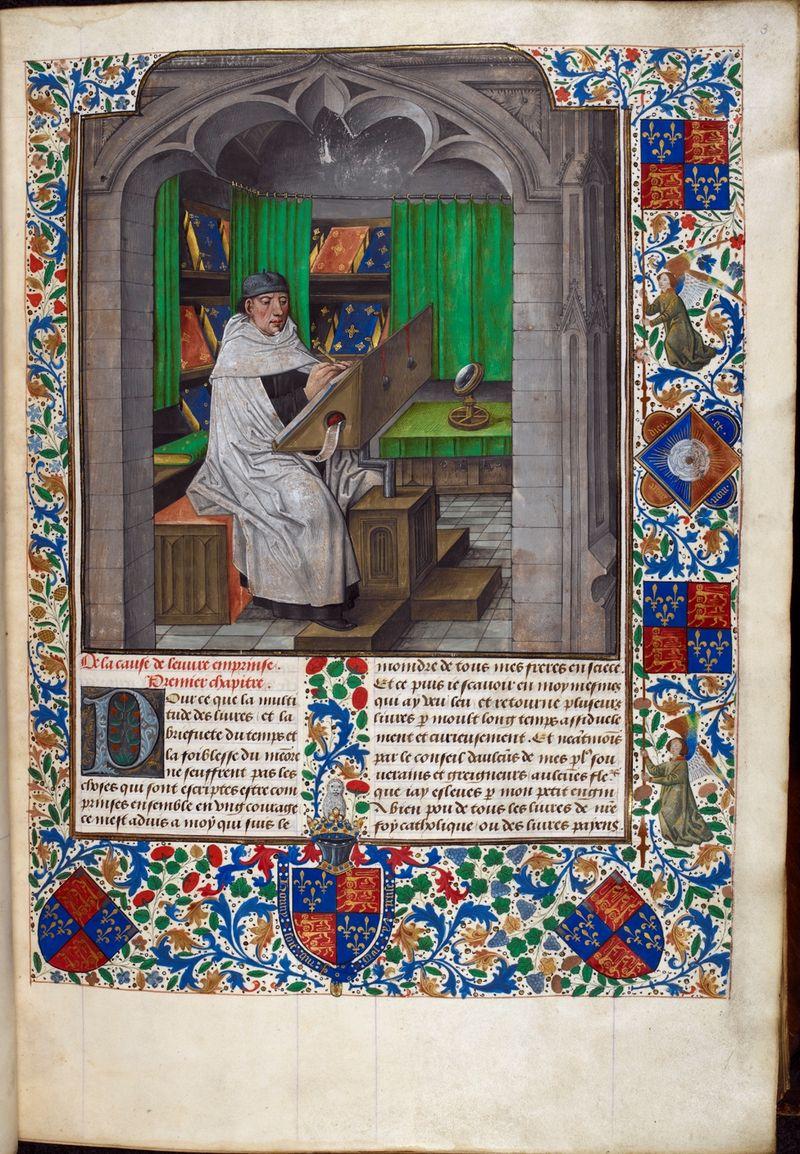 3
De la cause de leuure emprinse.
Premier chapitre.
Pour ce que la multi
tude des liures et la
briefuete du temps et
la foiblesse du
ne seuffrent pas les
choses qui sont escriptes estre com
prinses en semble en ung courage
ce mest aduis a moy qui suis le
moindre de tous mes freres en
Et ce puis ie scauoir en moy mesmes
qui ay veu leu et retourne pluseurs
liures p moult long temps assiduele
ment et curieusement. Et
par le conseil daulcuns de mes
uerains et greigneurs aulcunes
que iay esleues p mon petit engin
A bien pou de tous les liures de nre
foy catholique ou des liures payens
dieu et
mon
honny soit qui mal y pense